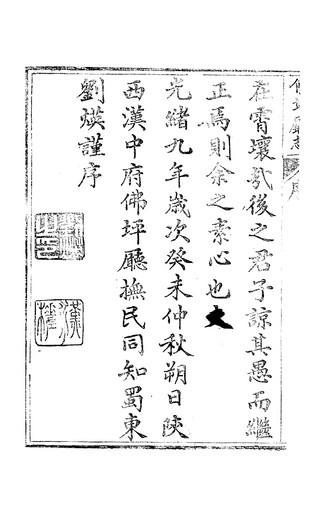 在霄壤哉後之君子諒其愚而繼
正焉則余之素心也夫
光緒九年歲次癸未仲秋朔日陝
西漢中府佛坪廳撫民同知蜀東
劉煐謹序